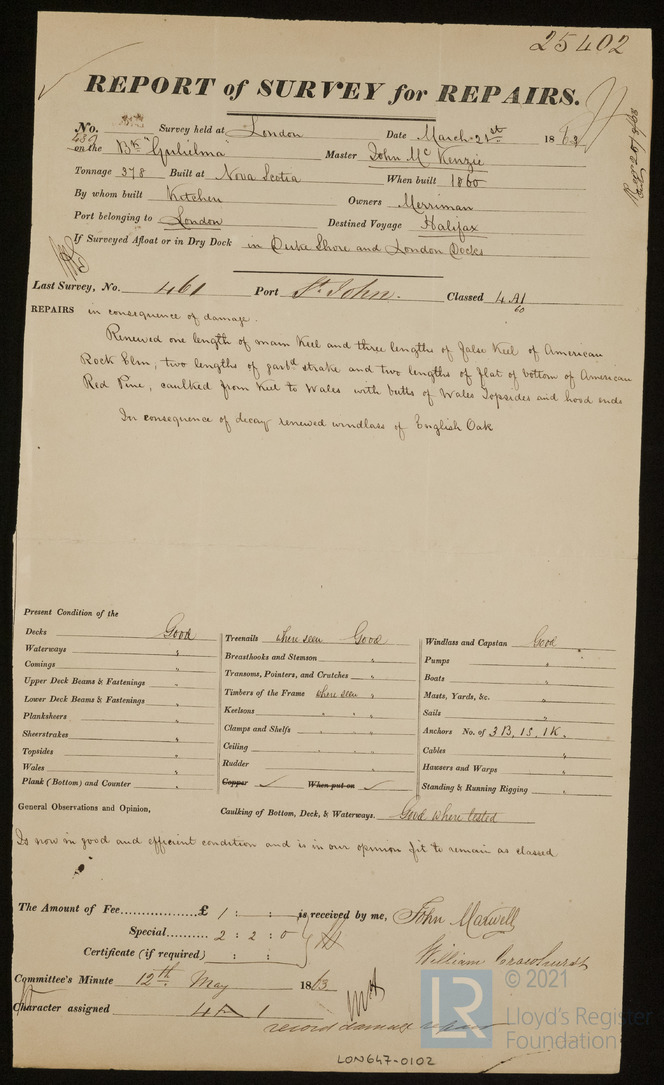 25402
REPORT of SURVEY for REPAIRS.
No. Survey held at London Date March 21st 1863
on the Bk "Gulielma" Master John McKenzie
Tonnage 378 Built at Nova Scotia When built 1860
By whom built Kitchen Owners Merriman
Port belonging to London Destined Voyage Halifax
If Surveyed Afloat or in Dry Dock in Shore and London Docks
Last Survey, No. 461 Port St. John. Classed 4 A1
60
REPAIRS in consequence of damage.
Renewed one length of main Keel and three lengths of false Keel of American
Rock Elm, two lengths of garbd strake and two lengths of flat of bottom of American
Red Pine, caulked from Keel to Wales with butts of Wales Topsides and hood ends
In consequence of decay renewed windlass of English Oak
Present Condition of the
Decks Good
Waterways "
Comings "
Upper Deck Beams & Fastenings "
Lower Deck Beams & Fastenings "
Planksheers "
Sheerstrakes "
Topsides "
Wales "
Plank (Bottom) and Counter "
Treenails where seen Good
Breasthooks and Stemson "
Transoms, Pointers, and Crutches "
Timbers of the Frame where seen "
Keelsons " " "
Clamps and Shelfs " " "
Ceiling " " "
Rudder "
Copper ✓ When put on ✓
Windlass and Capstan Good
Pumps "
Boats "
Masts, Yards, &c. "
Sails "
Anchors No. of 3 B, 1 S, 1 K.
Cables "
Hawsers and Warps "
Standing & Running Rigging "
General Observations and Opinion, Caulking of Bottom, Deck, & Waterways. Good where tested
Is now in good and efficient condition and is in our opinion fit to remain as classed
The Amount of Fee............... £ 1 : : is received by me, John Maxwell
Special.......... 2 : 2 : 0
Certificate (if required) : : William Crowhurst
Committee's Minute 12th May 1863
Character assigned 4 A 1
record damage repair
LON647-0102
© 2021
LR
Lloyd's Register
Foundation